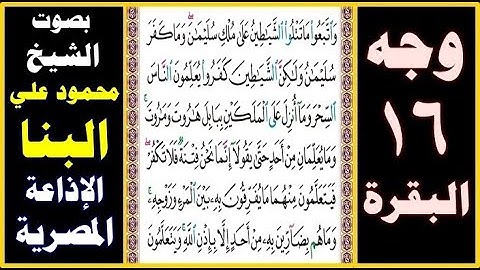 وجه
١٦
البقرة
وَاتَّبَعُوا مَا تَتْلُوا الشَّيَاطِينُ عَلَىٰ مُلْكِ سُلَيْمَٰنَ ۖ وَمَا كَفَرَ
سُلَيْمَٰنُ وَلَٰكِنَّ الشَّيَٰطِينَ كَفَرُوا يُعَلِّمُونَ النَّاسَ
السِّحْرَ وَمَا أُنزِلَ عَلَى الْمَلَكَيْنِ بِبَابِلَ هَٰرُوتَ وَمَٰرُوتَ ۚ
وَمَا يُعَلِّمَانِ مِنْ أَحَدٍ حَتَّىٰ يَقُولَا إِنَّمَا نَحْنُ فِتْنَةٌ فَلَا تَكْفُرْ ۖ
فَيَتَعَلَّمُونَ مِنْهُمَا مَا يُفَرِّقُونَ بِهِ بَيْنَ الْمَرْءِ وَزَوْجِهِ ۚ
وَمَا هُم بِضَارِّينَ بِهِ مِنْ أَحَدٍ إِلَّا بِإِذْنِ اللَّهِ ۚ وَيَتَعَلَّمُونَ
بصوت
الشيخ
محمود علي
البنا
الإذاعة
المصرية